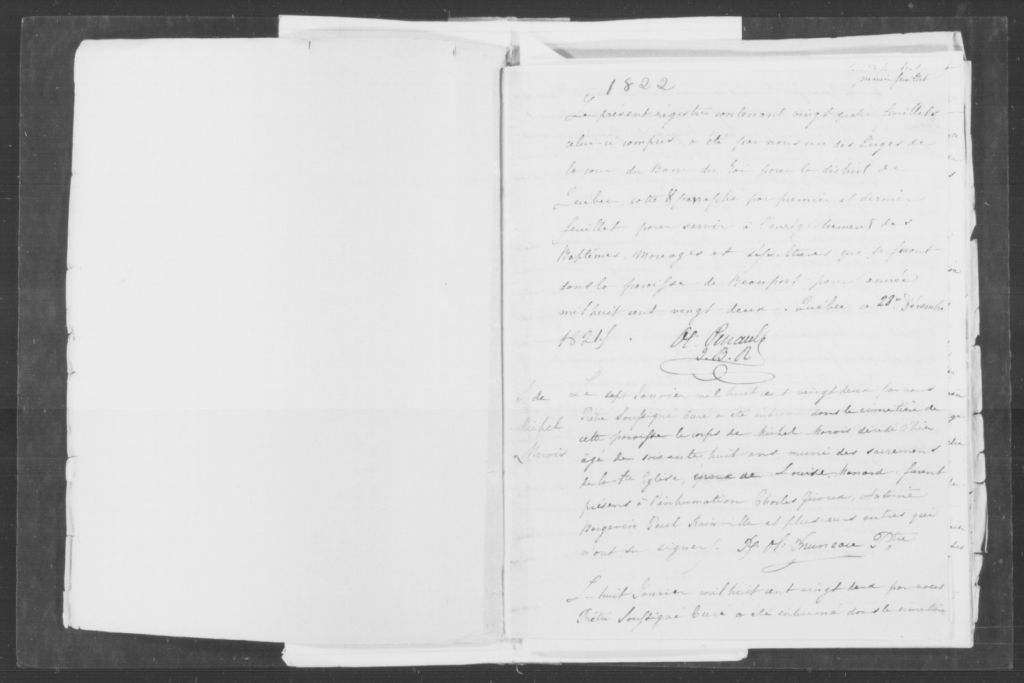 premier feuillet
1822
Le présent registre contenant vingt quatre feuillets
celui-ci compris a été par nous un des Juges de
la cour du Banc du Roi pour le district de
Québec, cotté & paraphé par premier et dernier
feuillet pour servir à l'enrégistrement des
Baptêmes, Mariages et Sépultures qui se feront
dans la paroisse de Beauport pour année
mil huit cent vingt deux. Québec ce 28me Décembre
1821.
Ol. Perrault
J.B.R
S. de
Michel
Marois
Le sept Janvier mil huit cent vingt deux par nous
Prêtre Soussigné Curé a été inhumé dans le cimetière de
cette paroisse le corps de Michel Marois décédé d'hier
âgé de soixante huit ans muni des sacremens
de la Ste Eglise, époux de Louise Menard, furent
présens à l'inhumation Charles Giroux, Antoine
Bergevin, Paul Rainville et plusieurs autres qui
n'ont su signer. Ptre
Le huit Janvier mil huit cent vingt deux par nous
Prêtre Soussigné Curé a été inhumé dans le cimetière